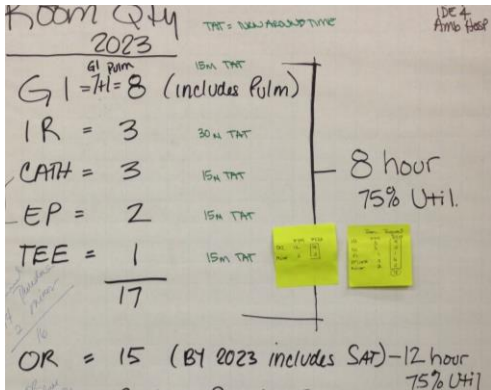 Room Qty
2023
TAT = TURN AROUND TIME
IDE 4
Amb Hosp
GI Pulm
GI = 7+1 = 8 (includes Pulm)
15M TAT
IR = 3
30M TAT
CATH = 3
15M TAT
EP = 2
15M TAT
TEE = 1
15M TAT
17
8 hour
75% Util.
OR = 15 (BY 2023 includes SAT) - 12 hour
75% Util